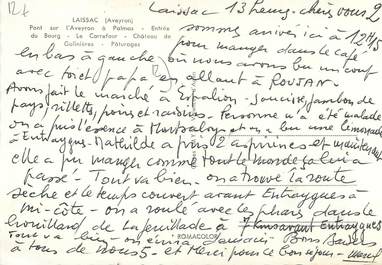 Laissac 13 heures - chers vous 2
LAISSAC (Aveyron)
Pont sur l'Aveyron à Palmas - Entrée
du Bourg - Le Carrefour - Château de
Galinières - Pâturages
sommes arrivés ici à 12H15
pour manger dans le café
en bas à gauche, où nous avons bu un coup
avec toi et papa en allant à ROUJAN.
Avons fait le marché à Espalion - saucisse, jambon de
pays, rillette, poires et raisins. Personne n'a été malade
on a pris l'essence à Montsalvy et on a bu une limonade
à Entraygues. Mathilde a pris 2 aspirines et maintenant
elle a pu manger comme tout le monde ça lui a
passé. Tout va bien - on a trouvé la route
sèche et le temps couvert avant Entraygues à
mi-côte - on a roulé avec les phares dans le
brouillard de Lafeuillade à avant Entraygues
ROMACOLOR
Tout va bien - on écrira Bons Baisers
à tous de nous 5 - et Merci pour le bon séjour -